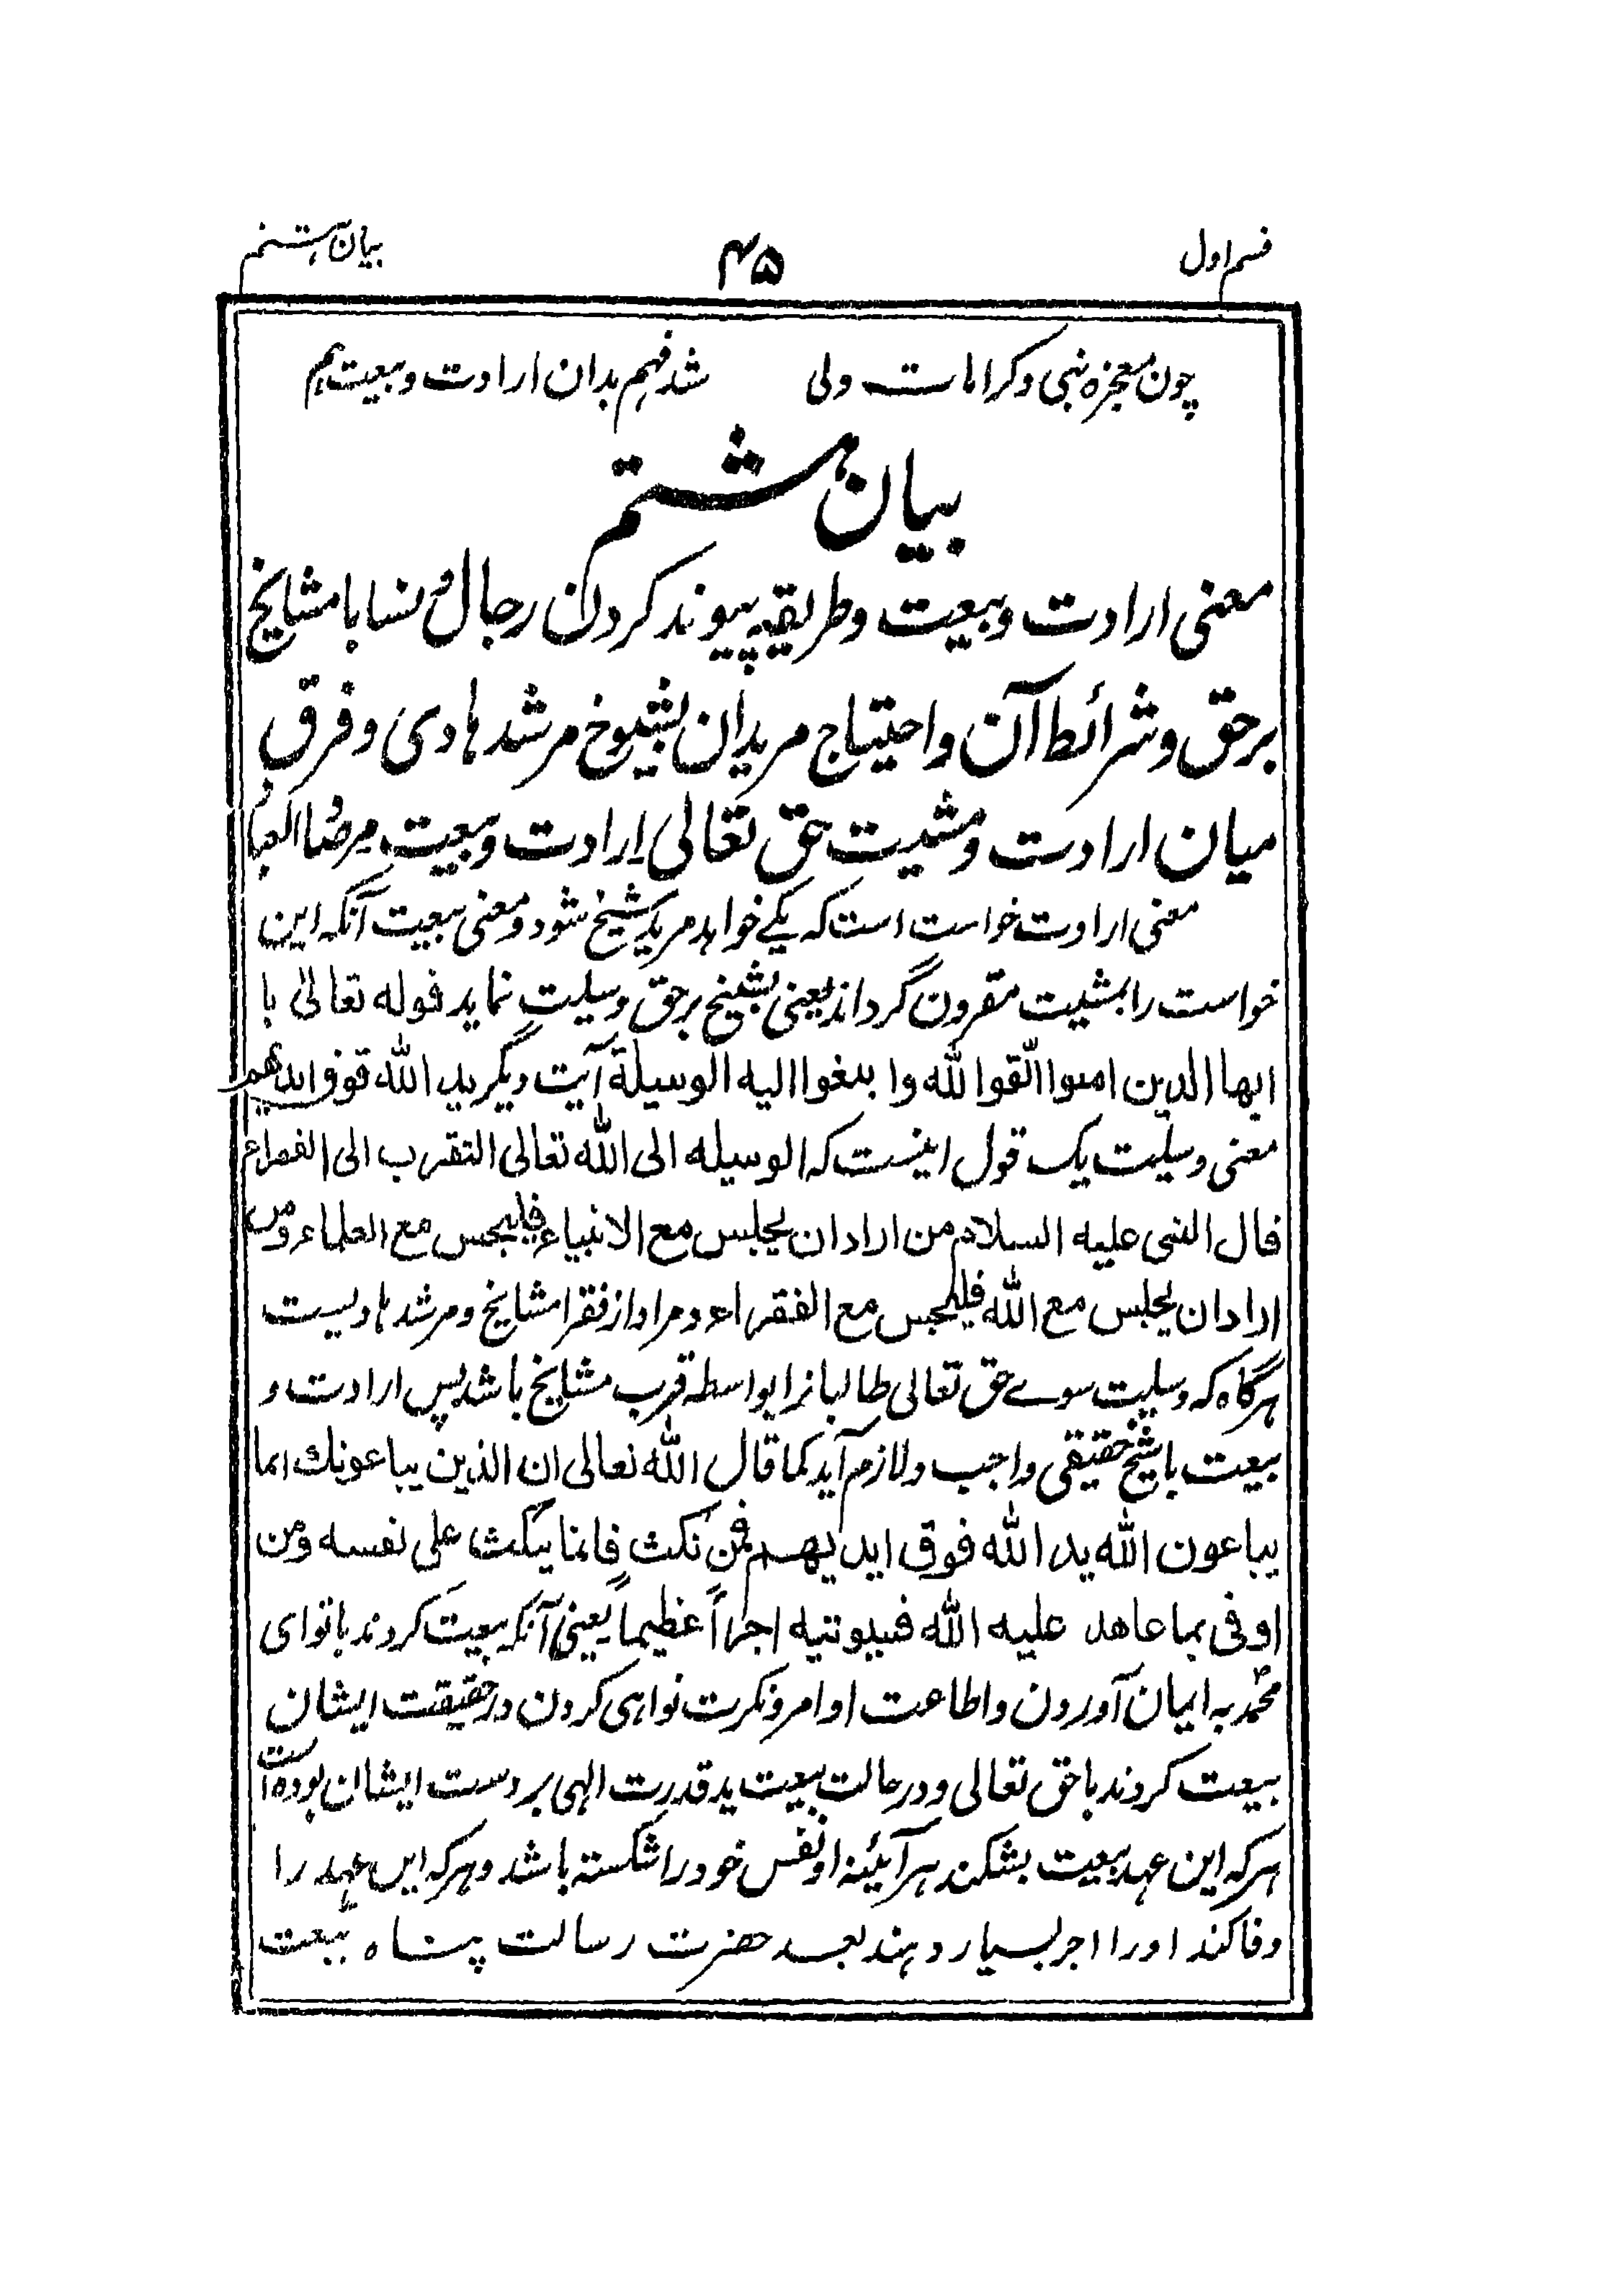 قسم اول
۴۵
بیان ہشتم
چون معجزه نبی و کرامات ولی شد فہم بدان ارادت و بیعت ہم
بیان ہشتم
معنی ارادت و بیعت و طریقه پیوند کردن رجال و نسا با مشایخ
برحق و شرائط آن و احتیاج مریدان بشیوخ مرشد ہادی و فرق
میان ارادت و مشیت حق تعالی ارادت و بیعت
معنی ارادت خواست است که یکے خواہد مرید شیخ شود و معنی بیعت آنکه این
خواست را بمشیت مقرون گرداند یعنی بشیخ برحق وسیلت نماید قوله تعالیٰ یا
ایها الذین امنوا اتّقوا لله وا بتغوا الیه الوسیلة آیت دیگر ید الله فوق ایدیهم
معنی وسیلت یک قول اینست که الوسیله الی الله تعالی التقرب الی الفقراء
قال النبی علیه السلام من اراد ان یجلس مع الانبیاء فلیجلس مع العلماء ومن
اراد ان یجلس مع الله فلیجلس مع الفقراء و مراد از فقرا مشایخ و مرشد ہادیست
ہرگاه که وسیلت سوے حق تعالی طالبانرا بواسطه قرب مشایخ باشد پس ارادت و
بیعت با شیخ حقیقی واجب و لازم آید کما قال الله تعالی ان الذین یباعونك انما
یباعون الله ید الله فوق ایدیهم فمن نکث فانما ینکث علی نفسه ومن
اوفی بما عاهد علیه الله فسیوتیه اجراً عظیماً یعنی آنکه بیعت کردند با تو ای
محمدؐ به ایمان آوردن و اطاعت اوامر و نکرت نواہی کردن در حقیقت ایشان
بیعت کردند با حق تعالی و در حالت بیعت ید قدرت الہی بر دست ایشان بوده است
ہرکه این عہد بیعت بشکند ہر آئینه او نفس خود را شکسته باشد و ہرکه این عہد را
وفا کند او را اجر بسیار دہند بعد حضرت رسالت پناه بیعت